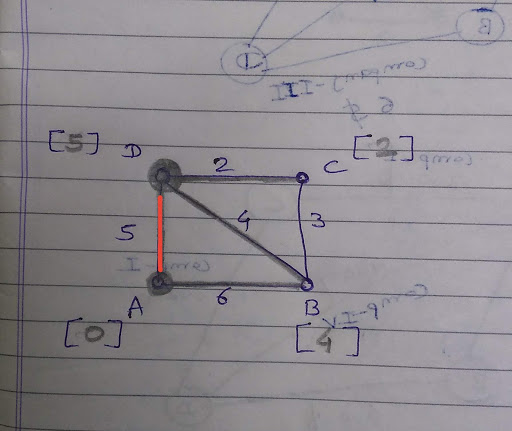 [5] D 2 C [2]
5 4 3
A 6 B
[0] [4]